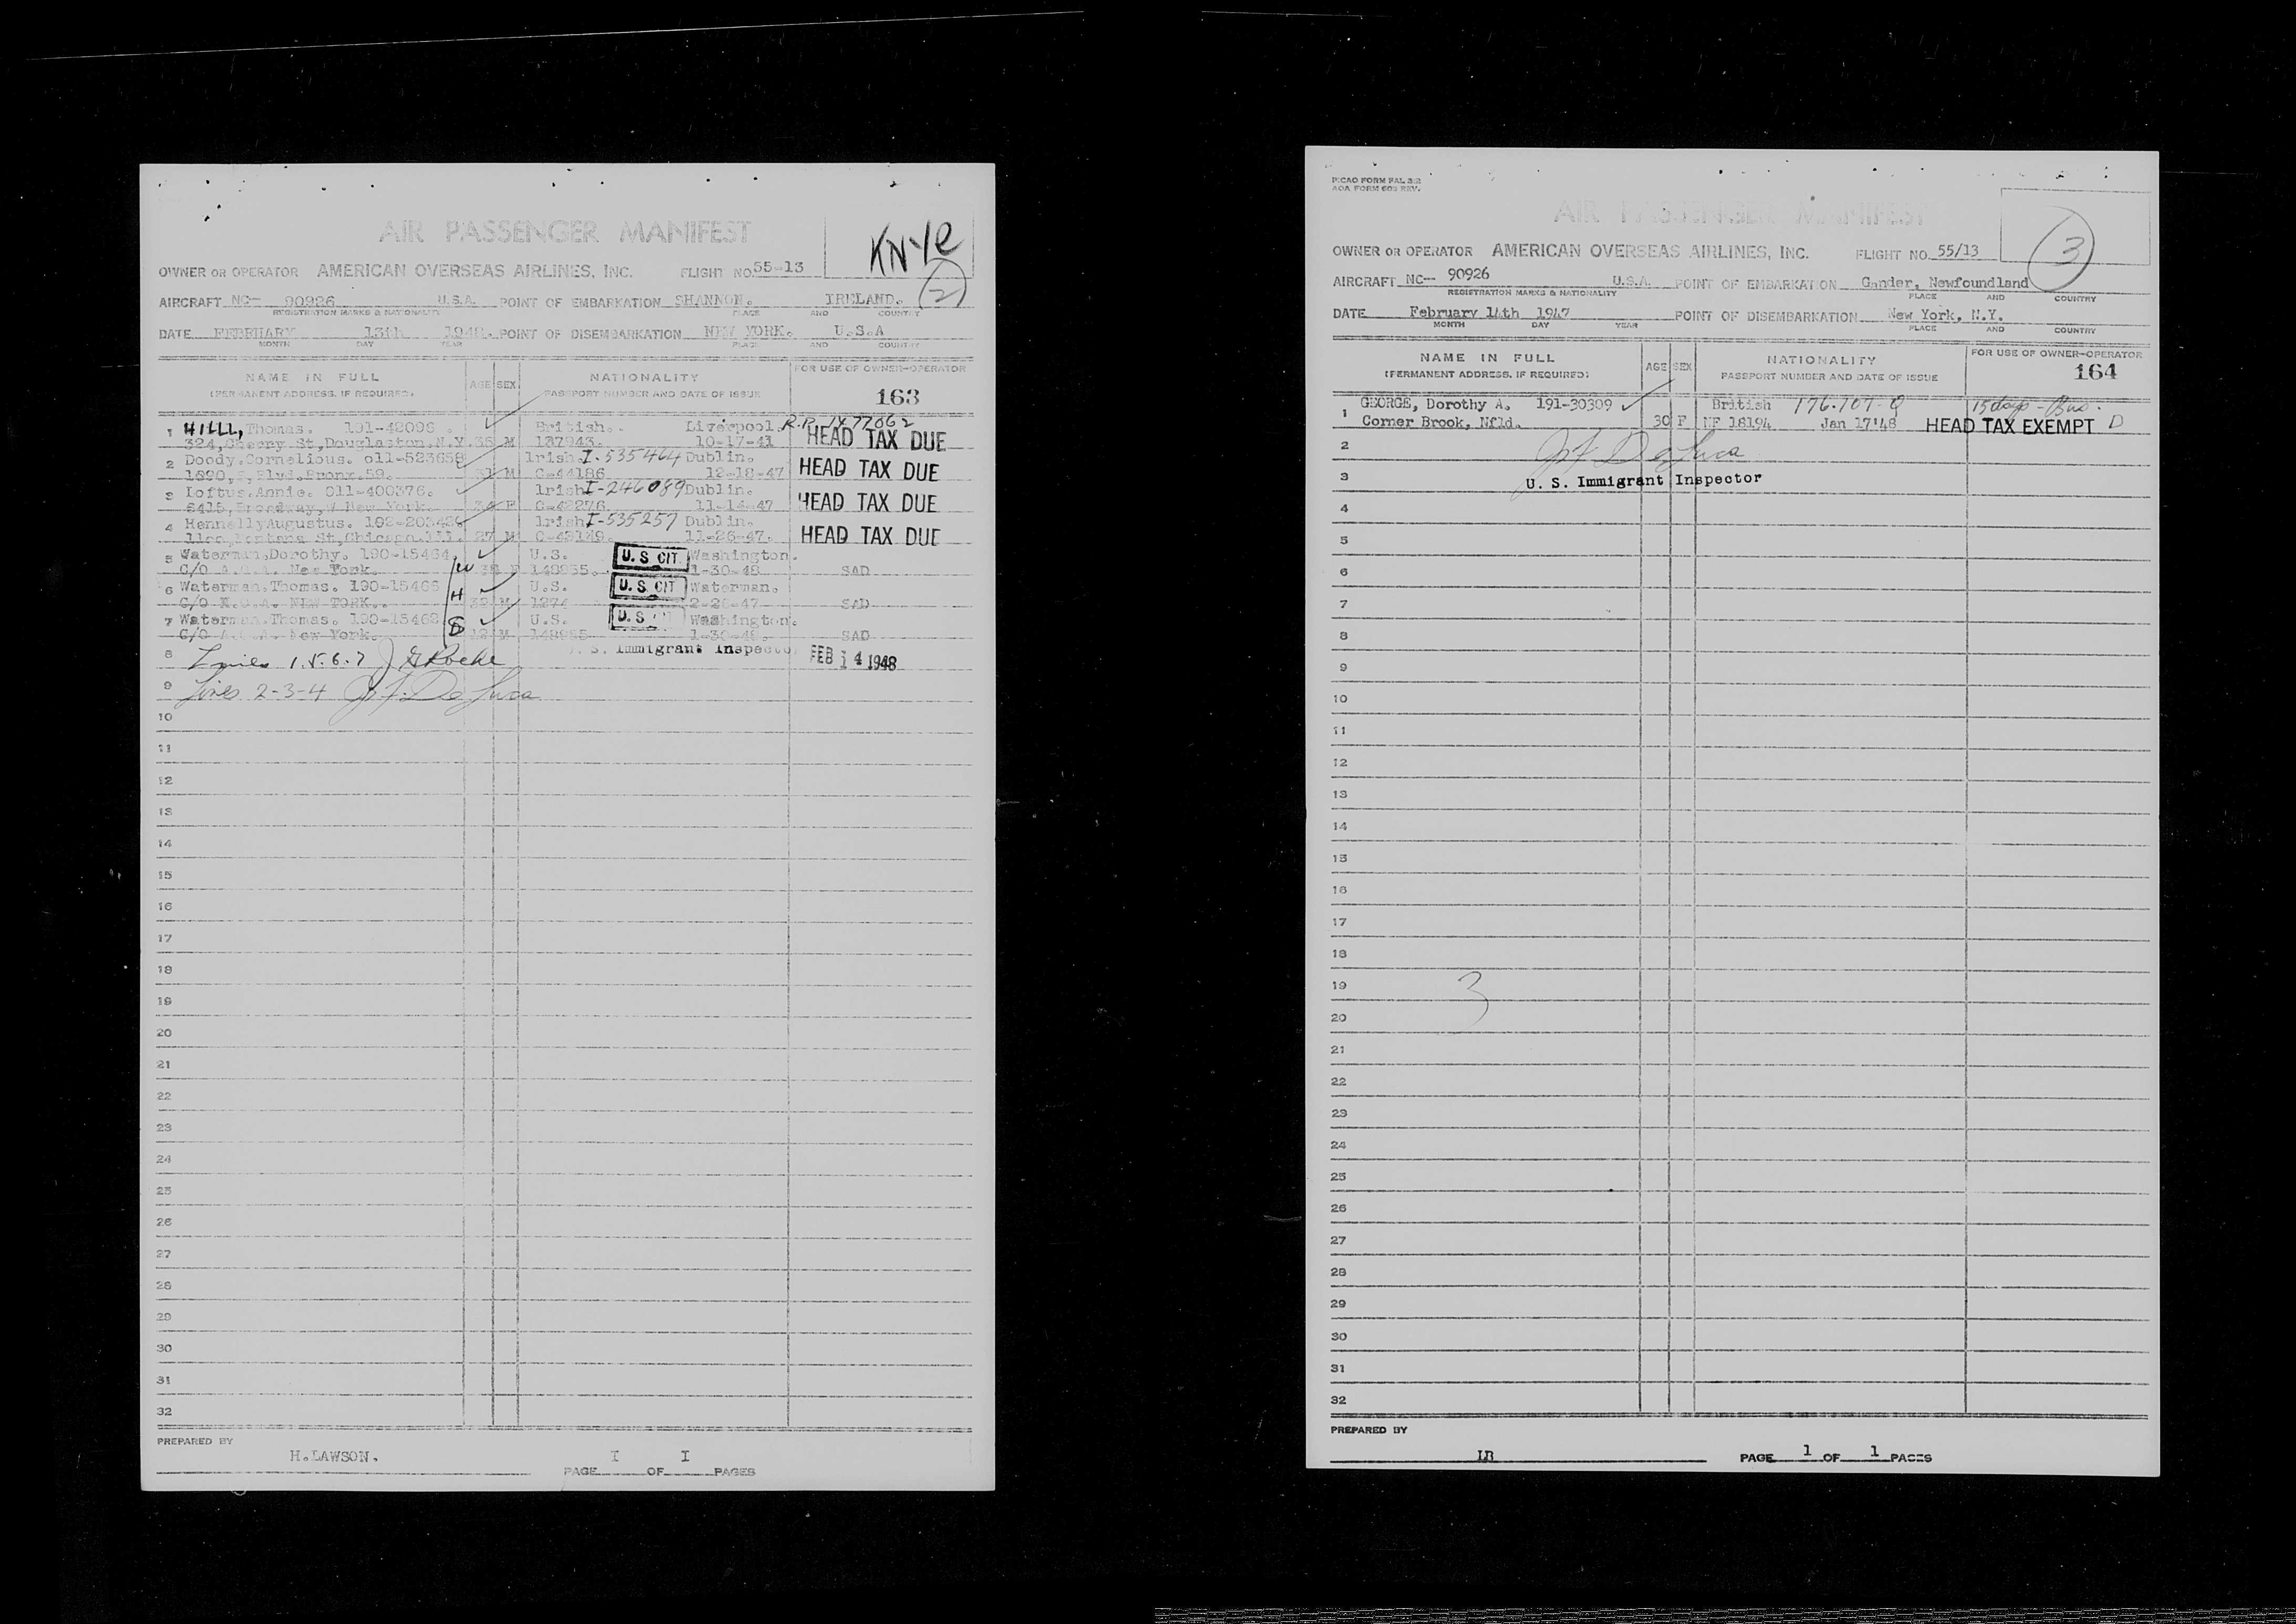 AIR PASSENGER MANIFEST
KNYC
2
OWNER OR OPERATOR AMERICAN OVERSEAS AIRLINES, INC. FLIGHT NO. 55-13
AIRCRAFT NC- 90926 U.S.A. POINT OF EMBARKATION SHANNON. IRELAND.
REGISTRATION MARKS & NATIONALITY PLACE AND COUNTRY
DATE FEBRUARY 13th 1948. POINT OF DISEMBARKATION NEW YORK. U.S.A
MONTH DAY YEAR PLACE AND COUNTRY
NAME IN FULL AGE SEX NATIONALITY FOR USE OF OWNER-OPERATOR
(PERMANENT ADDRESS, IF REQUIRED) PASSPORT NUMBER AND DATE OF ISSUE 163
1 HILL, Thomas. 191-42096 . British. Liverpool. R.P. 1477062
324, Cherry St, Douglaston. N.Y. 35 M 137943. 10-17-41 HEAD TAX DUE
2 Doody. Cornelious. 011-523658 Irish. I-535464 Dublin.
1890, Blvd. Bronx. 59. 31 M C-44186 12-18-47 HEAD TAX DUE
3 Loftus. Annie. 011-400376. Irish I-246089 Dublin.
6415, Broadway, New York. F C-42276 11-14-47 HEAD TAX DUE
4 Hennelly Augustus. 192-203426 Irish I-535257 Dublin.
Montana St, Chicago. Ill. 27 M C-43149. 11-26-47. HEAD TAX DUE
5 Waterman, Dorothy. 190-15464. U.S. U.S. CIT Washington.
C/O New York. W F 148935. 1-30-48 SAD
6 Waterman. Thomas. 190-15466 U.S. U.S. CIT Waterman.
C/O A.O.A. NEW YORK. H M 2-26-47 SAD
7 Waterman. Thomas. 190-15462 U.S. U.S. Washington.
C/O New York. S 12 M 1-30-48. SAD
8 Lines 1.5.6.7 J G Roche U. S. Immigrant Inspector FEB 14 1948
9 Lines 2-3-4 J. F. De Luca
10
11
12
13
14
15
16
17
18
19
20
21
22
23
24
25
26
27
28
29
30
31
32
PREPARED BY
H. LAWSON. PAGE I OF I PAGES
PICAO FORM FAL 3.2
AOA FORM 603 REV.
AIR PASSENGER MANIFEST
3
OWNER OR OPERATOR AMERICAN OVERSEAS AIRLINES, INC. FLIGHT NO. 55/13
AIRCRAFT NC-- 90926 U.S.A. POINT OF EMBARKATION Gander, Newfoundland
REGISTRATION MARKS & NATIONALITY PLACE AND COUNTRY
DATE February 14th 1947 POINT OF DISEMBARKATION New York, N.Y.
MONTH DAY YEAR PLACE AND COUNTRY
NAME IN FULL AGE SEX NATIONALITY FOR USE OF OWNER-OPERATOR
(PERMANENT ADDRESS, IF REQUIRED) PASSPORT NUMBER AND DATE OF ISSUE 164
1 GEORGE, Dorothy A. 191-30309 British 176.707-Q 15 days - Bus.
Corner Brook, Nfld. 30 F NF 18194 Jan 17'48 HEAD TAX EXEMPT D
2 J. F. De Luca
3 U. S. Immigrant Inspector
4
5
6
7
8
9
10
11
12
13
14
15
16
17
18
19
3
20
21
22
23
24
25
26
27
28
29
30
31
32
PREPARED BY
LB PAGE 1 OF 1 PAGES